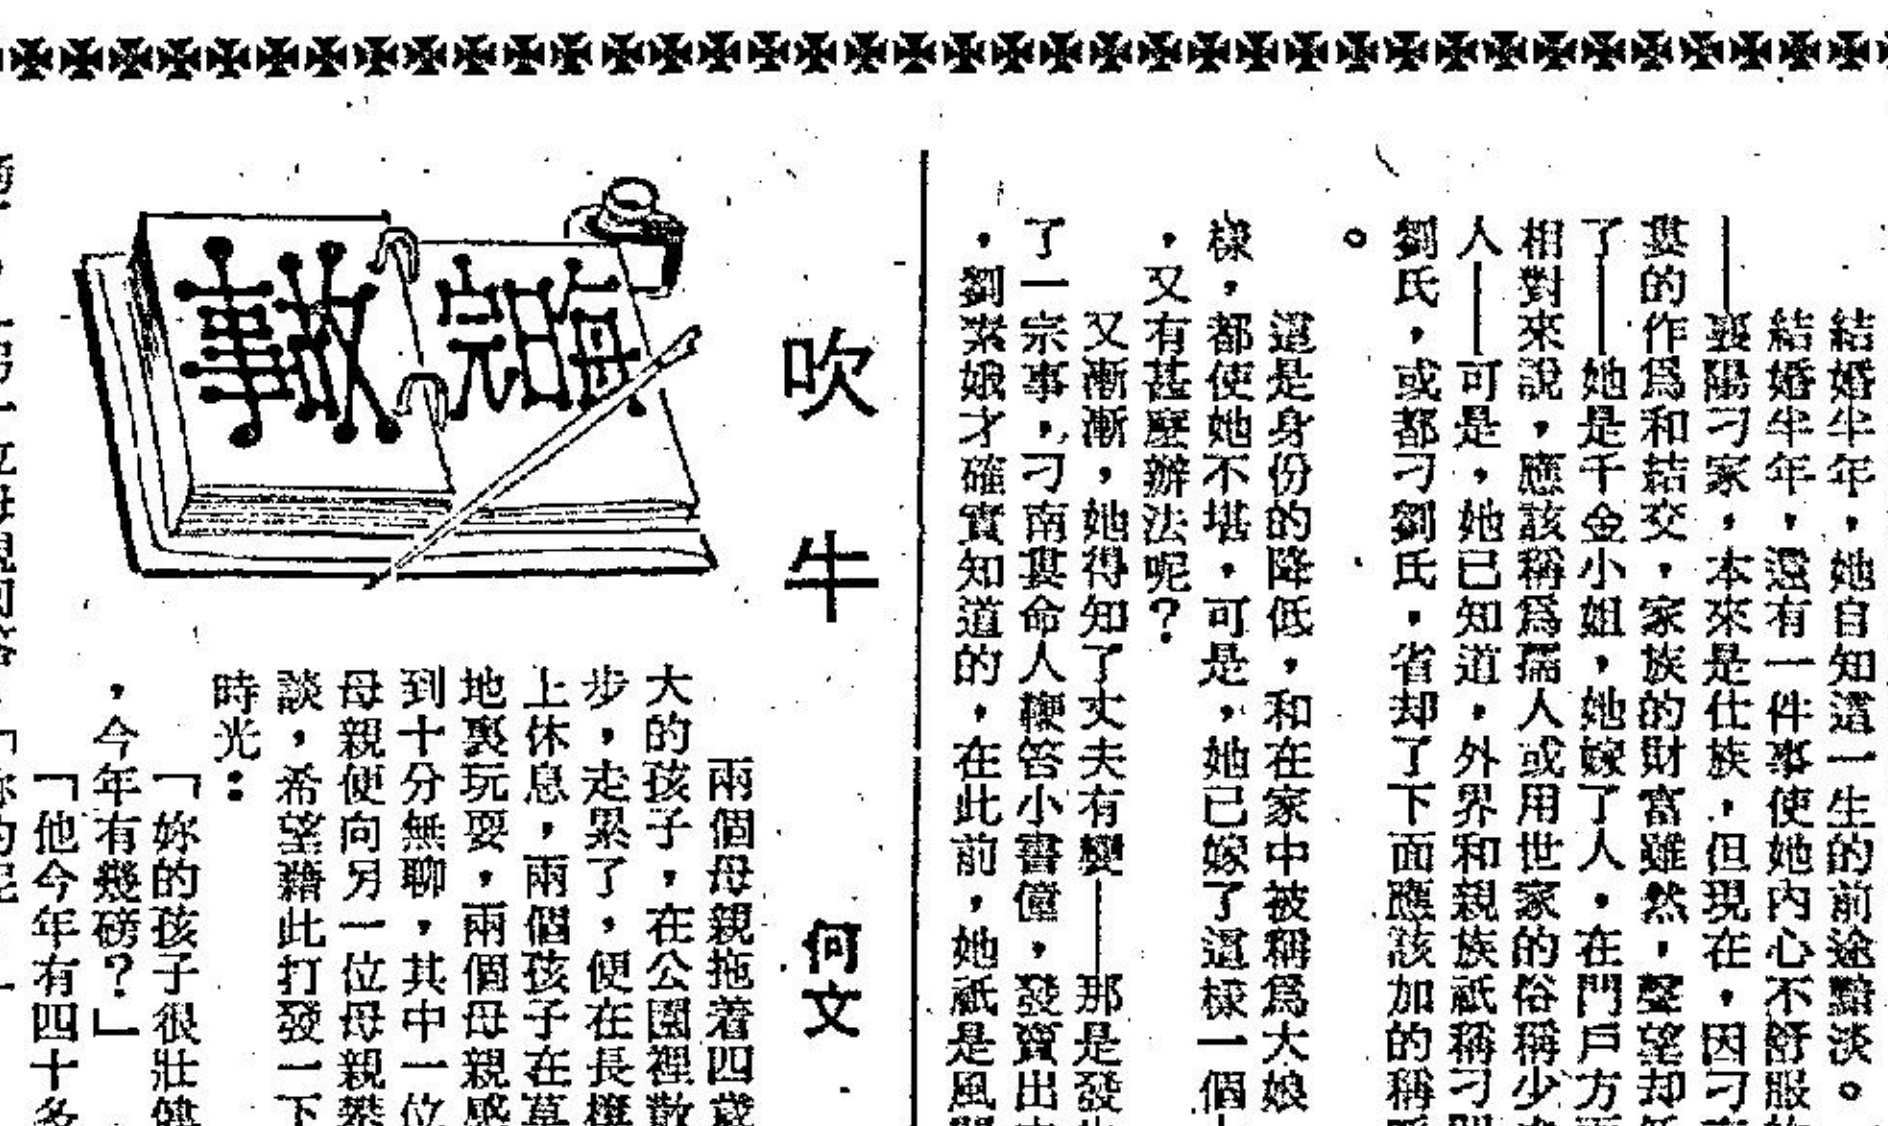 結婚半年，她自知這一生的前途黯淡。
結婚半年，還有一件事使她內心不舒服
——襄陽刁家，本來是仕族，但現在，因刁
的作爲和結交，家族的財富雖然，聲望却
了——她是千金小姐，她嫁了人，在門戶方
相對來說，應該稱爲孺人或用世家的俗稱少
人——可是，她已知道，外界和親族祇稱刁
劉氏，或都刁劉氏，省却了下面應該加的稱
。
這是身份的降低，和在家中被稱爲大娘
樣，都使她不堪，可是，她已嫁了這樣一個
，又有甚麼辦法呢？
又漸漸，她得知了丈夫有變——那是發
了一宗事，刁南命人鞭笞小書僮，發賣出
，劉素娥才確實知道的，在此前，她祇是風
每日一完
故事
吹牛
何文
兩個母親拖着四歲
大的孩子，在公園裡散
步，走累了，便在長櫈
上休息，兩個孩子在草
地裏玩耍，兩個母親感
到十分無聊，其中一位
母親便向另一位母親攀
談，希望藉此打發一下
時光：
「妳的孩子很壯健
，今年有幾磅？」
「他今年有四十多